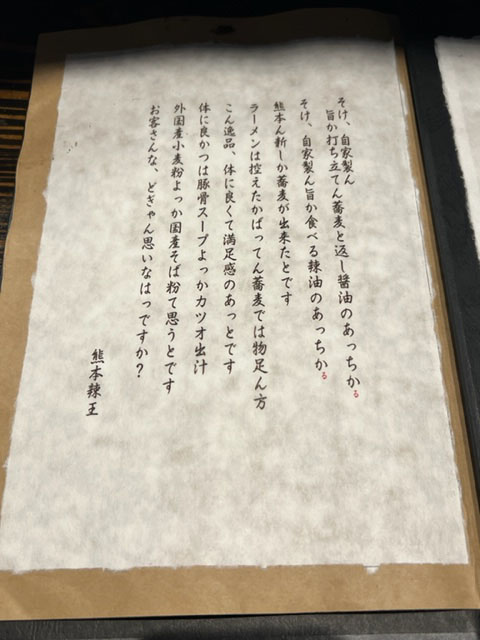 そけ、自家製ん
旨か打ち立てん蕎麦と返し醤油のあっちかる
そけ、自家製ん旨か食べる辣油のあっちかる
熊本ん新しか蕎麦が出来たとです
ラーメンは控えたかばってん蕎麦では物足ん方
こん逸品、体に良くて満足感のあっとです
体に良かつは豚骨スープよっかカツオ出汁
外国産小麦粉よっか国産そば粉て思うとです
お客さんな、どぎゃん思いなはっですか？
熊本辣王